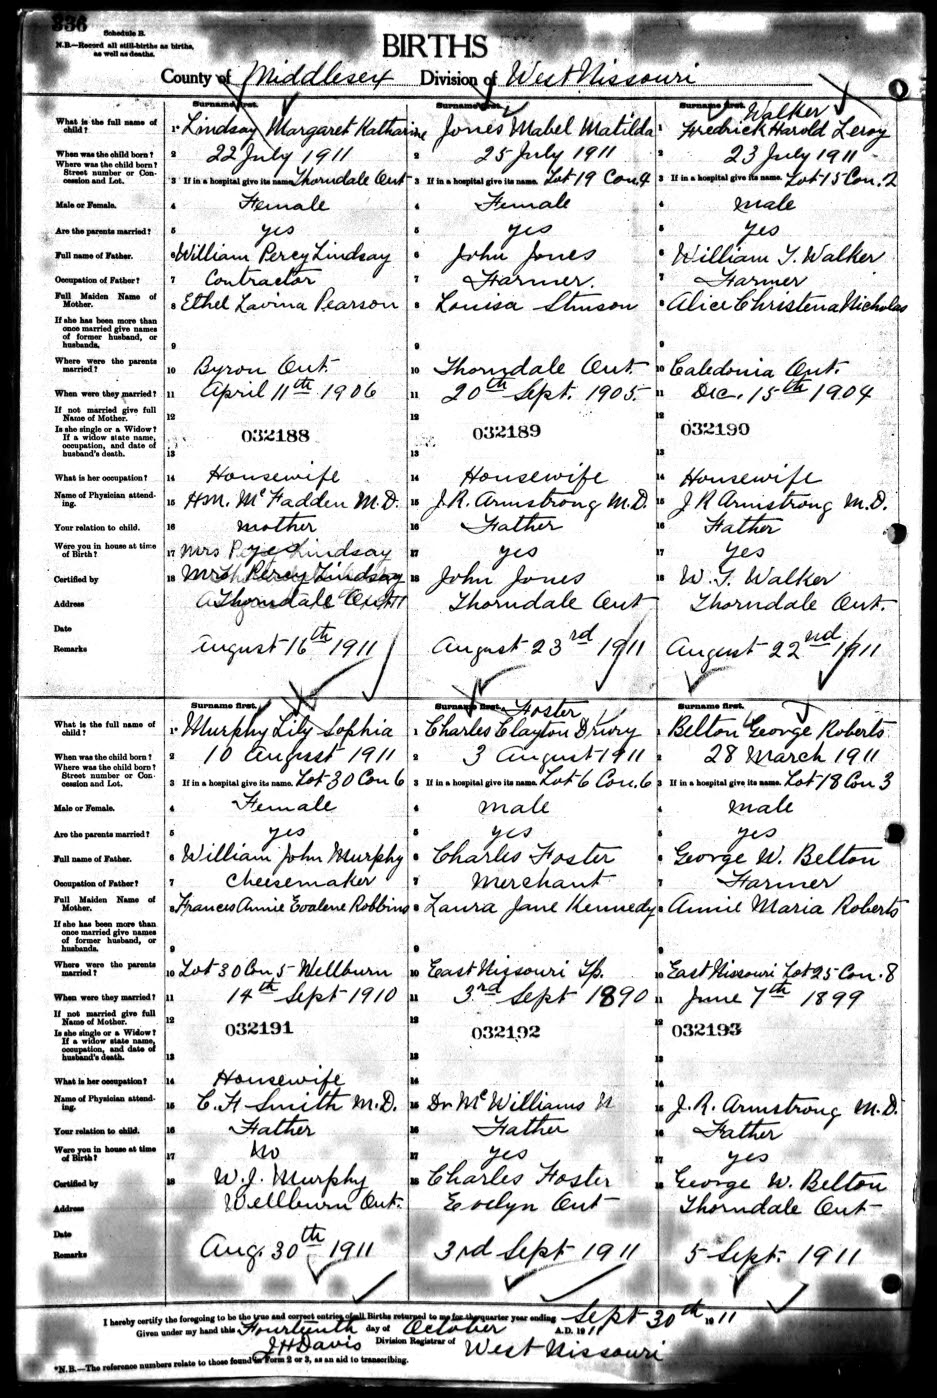 336
Schedule B.
N.B.—Record all still-births as births, as well as deaths.
BIRTHS
County of Middlesex Division of West Nissouri
Surname first. Surname first. Surname first. Walker
What is the full name of child? 1 Lindsay Margaret Katharine 1 Jones Mabel Matilda 1 Fredrick Harold Leroy
When was the child born? 2 22 July 1911 2 25 July 1911 2 23 July 1911
Where was the child born? Street number or Concession and Lot. 3 If in a hospital give its name. Thorndale Ont 3 If in a hospital give its name. Lot 19 Con. 4 3 If in a hospital give its name. Lot 15 Con. 2
Male or Female. 4 Female 4 Female 4 male
Are the parents married? 5 yes 5 yes 5 yes
Full name of Father. 6 William Percy Lindsay 6 John Jones 6 William T. Walker
Occupation of Father? 7 Contractor 7 Farmer. 7 Farmer
Full Maiden Name of Mother. 8 Ethel Lavina Pearson 8 Louisa Stinson 8 Alice Christena Nicholas
If she has been more than once married give names of former husband, or husbands. 9 9 9
Where were the parents married? 10 Byron Ont. 10 Thorndale Ont. 10 Caledonia Ont.
When were they married? 11 April 11th 1906 11 20th Sept. 1905. 11 Dec. 15th 1904
If not married give full Name of Mother. 12 12 12
Is she single or a Widow? If a widow state name, occupation, and date of husband's death. 13 032188 13 032189 13 032190
What is her occupation? 14 Housewife 14 Housewife 14 Housewife
Name of Physician attending. 15 HM. McFadden M.D. 15 J.R. Armstrong M.D. 15 J R Armstrong M.D.
Your relation to child. 16 mother 16 Father 16 Father
Were you in house at time of Birth? 17 Mrs P yes Lindsay 17 yes 17 Yes
Certified by 18 Mrs Percy Lindsay 18 John Jones 18 W. T. Walker
Address Thorndale Ont Thorndale Ont Thorndale Ont.
Date
Remarks August 16th 1911 August 23rd 1911 August 22nd 1911
Surname first. Surname first. Foster Surname first.
What is the full name of child? 1 Murphy Lily Sophia 1 Charles Clayton Drury 1 Belton George Roberts
When was the child born? 2 10 August 1911 2 3 August 1911 2 28 March 1911
Where was the child born? Street number or Concession and Lot. 3 If in a hospital give its name. Lot 30 Con 6 3 If in a hospital give its name. Lot 6 Con. 6 3 If in a hospital give its name. Lot 18 Con 3
Male or Female. 4 Female 4 male 4 male
Are the parents married? 5 yes 5 yes 5 yes
Full name of Father. 6 William John Murphy 6 Charles Foster 6 George W. Belton
Occupation of Father? 7 Cheesemaker 7 Merchant 7 Farmer
Full Maiden Name of Mother. 8 Frances Annie Evalene Robbins 8 Laura Jane Kennedy 8 Annie Maria Roberts
If she has been more than once married give names of former husband, or husbands. 9 9 9
Where were the parents married? 10 Lot 30 Con 5 Wellburn 10 East Nissouri Tp. 10 East Nissouri Lot 25 Con. 8
When were they married? 11 14th Sept 1910 11 3rd Sept 1890 11 June 7th 1899
If not married give full Name of Mother. 12 12 12
Is she single or a Widow? If a widow state name, occupation, and date of husband's death. 13 032191 13 032192 13 032193
What is her occupation? 14 Housewife 14 14
Name of Physician attending. 15 C. H Smith M.D. 15 Dr McWilliams 15 J. R. Armstrong M.D.
Your relation to child. 16 Father 16 Father 16 Father
Were you in house at time of Birth? 17 No 17 yes 17 yes
Certified by 18 W. J. Murphy 18 Charles Foster 18 George W. Belton
Address Wellburn Ont. Evelyn Ont Thorndale Ont
Date
Remarks Aug. 30th 1911 3rd Sept 1911 5 Sept. 1911
I hereby certify the foregoing to be the true and correct entries of all Births returned to me for the quarter year ending Sept 30th 1911
Given under my hand this Fourteenth day of October A.D. 1911
J H Davis Division Registrar of West Nissouri
*N.B.—The reference numbers relate to those found in Form 2 or 3, as an aid to transcribing.